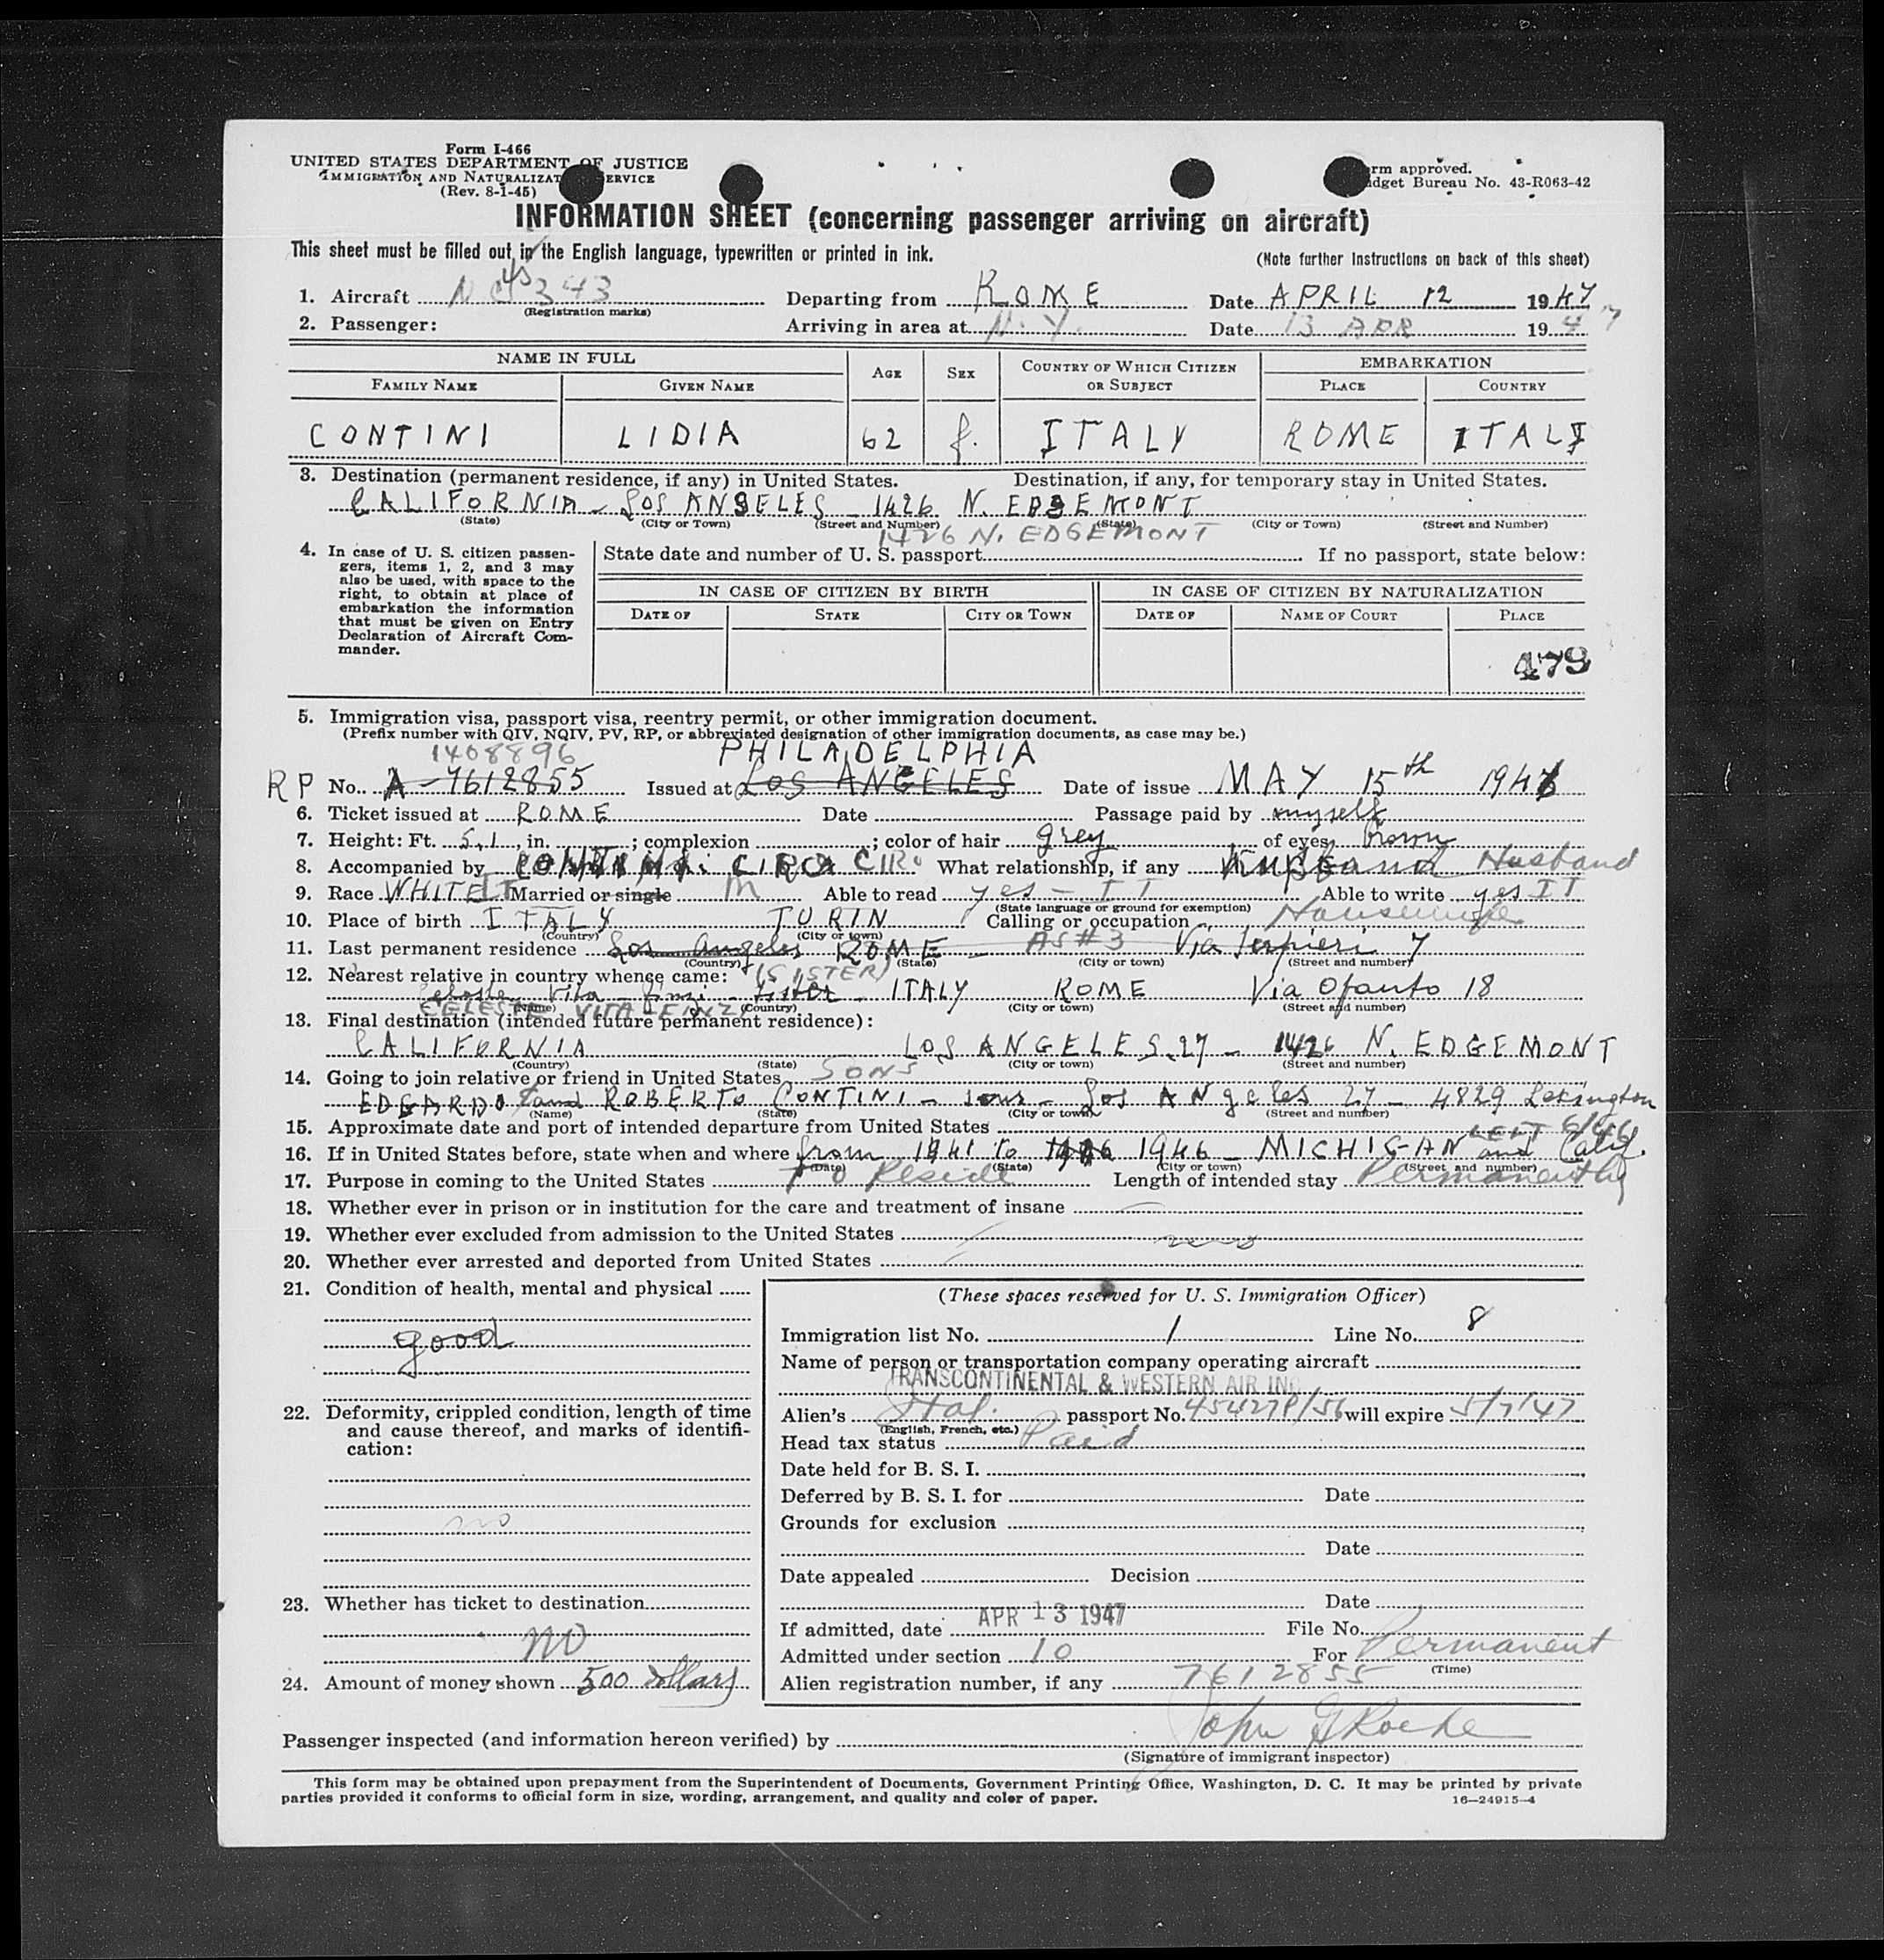 Form I-466
UNITED STATES DEPARTMENT OF JUSTICE
IMMIGRATION AND NATURALIZAT ERVICE
(Rev. 8-1-45)
rm approved.
dget Bureau No. 43-R063-42
INFORMATION SHEET (concerning passenger arriving on aircraft)
This sheet must be filled out in the English language, typewritten or printed in ink.
(Note further instructions on back of this sheet)
1. Aircraft 343 Departing from ROME Date APRIL 12 1947
(Registration marks)
2. Passenger: Arriving in area at N.Y. Date 13 APR 1947
NAME IN FULL AGE SEX COUNTRY OF WHICH CITIZEN OR SUBJECT EMBARKATION
FAMILY NAME GIVEN NAME PLACE COUNTRY
CONTINI LIDIA 62 f. ITALY ROME ITALY
3. Destination (permanent residence, if any) in United States. Destination, if any, for temporary stay in United States.
CALIFORNIA - LOS ANGELES - 1426 N. EDGEMONT
(State) (City or Town) (Street and Number) (State) (City or Town) (Street and Number)
1426 N. EDGEMONT
4. In case of U. S. citizen passengers, items 1, 2, and 3 may also be used, with space to the right, to obtain at place of embarkation the information that must be given on Entry Declaration of Aircraft Commander.
State date and number of U. S. passport If no passport, state below:
IN CASE OF CITIZEN BY BIRTH IN CASE OF CITIZEN BY NATURALIZATION
DATE OF STATE CITY OR TOWN DATE OF NAME OF COURT PLACE
479
5. Immigration visa, passport visa, reentry permit, or other immigration document.
(Prefix number with QIV, NQIV, PV, RP, or abbreviated designation of other immigration documents, as case may be.)
1408896 PHILADELPHIA
RP No. A-7612855 Issued at LOS ANGELES Date of issue MAY 15th 1946
6. Ticket issued at ROME Date Passage paid by myself
7. Height: Ft. 5,1, in. ; complexion ; color of hair grey of eyes brown
8. Accompanied by CONTINI CIRO CIRO What relationship, if any Husband Husband
9. Race WHITE IT Married or single M Able to read yes - IT Able to write yes IT
(State language or ground for exemption)
10. Place of birth ITALY TURIN Calling or occupation Housewife
(Country) (City or town)
11. Last permanent residence Los Angeles ROME - AS #3 Via Serpieri 7
(Country) (State) (City or town) (Street and number)
12. Nearest relative in country whence came: (SISTER)
Celeste Vita Sister - ITALY ROME Via Ofanto 18
CELESTE VITA
(Name) (Country) (City or town) (Street and number)
13. Final destination (intended future permanent residence):
CALIFORNIA LOS ANGELES 27 - 1426 N. EDGEMONT
(Country) (State) (City or town) (Street and number)
14. Going to join relative or friend in United States SONS
EDGARDO and ROBERTO CONTINI - sons - Los ANgeles 27 - 4829 Lexington
(Name) (State) (City or town) (Street and number)
15. Approximate date and port of intended departure from United States
LEFT 6/46
16. If in United States before, state when and where from 1941 to 1946 - MICHIGAN and Calif.
(Date) (State) (City or town) (Street and number)
17. Purpose in coming to the United States To Reside Length of intended stay Permanently
18. Whether ever in prison or in institution for the care and treatment of insane
19. Whether ever excluded from admission to the United States
20. Whether ever arrested and deported from United States
21. Condition of health, mental and physical
good
22. Deformity, crippled condition, length of time and cause thereof, and marks of identification:
no
23. Whether has ticket to destination
no
24. Amount of money shown 500 dollars
(These spaces reserved for U. S. Immigration Officer)
Immigration list No. 1 Line No. 8
Name of person or transportation company operating aircraft
TRANSCONTINENTAL & WESTERN AIR INC
Alien's Ital. passport No. 454278/56 will expire 5/7/47
(English, French, etc.)
Head tax status Paid
Date held for B. S. I.
Deferred by B. S. I. for Date
Grounds for exclusion
Date
Date appealed Decision
Date
If admitted, date APR 13 1947 File No.
Admitted under section 10 For Permanent
(Time)
Alien registration number, if any 7612855
John G Roche
Passenger inspected (and information hereon verified) by
(Signature of immigrant inspector)
This form may be obtained upon prepayment from the Superintendent of Documents, Government Printing Office, Washington, D. C. It may be printed by private
parties provided it conforms to official form in size, wording, arrangement, and quality and color of paper.
16-24915-4